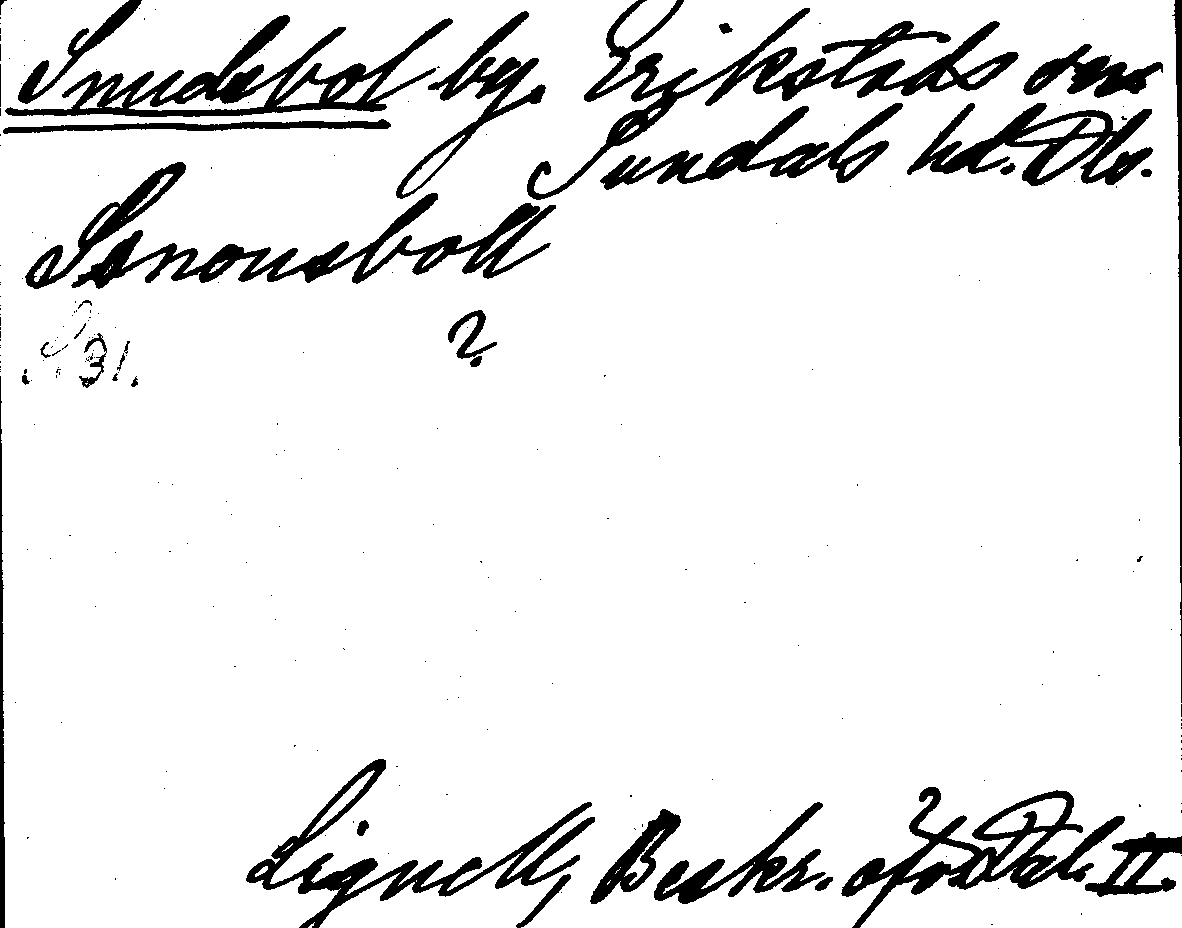 Snudebol by. Erikstads sn.
Sundals hd. Dls.
Snousboll
?
S. 31.
Lignell, Beskr. öfv. Dal. II.